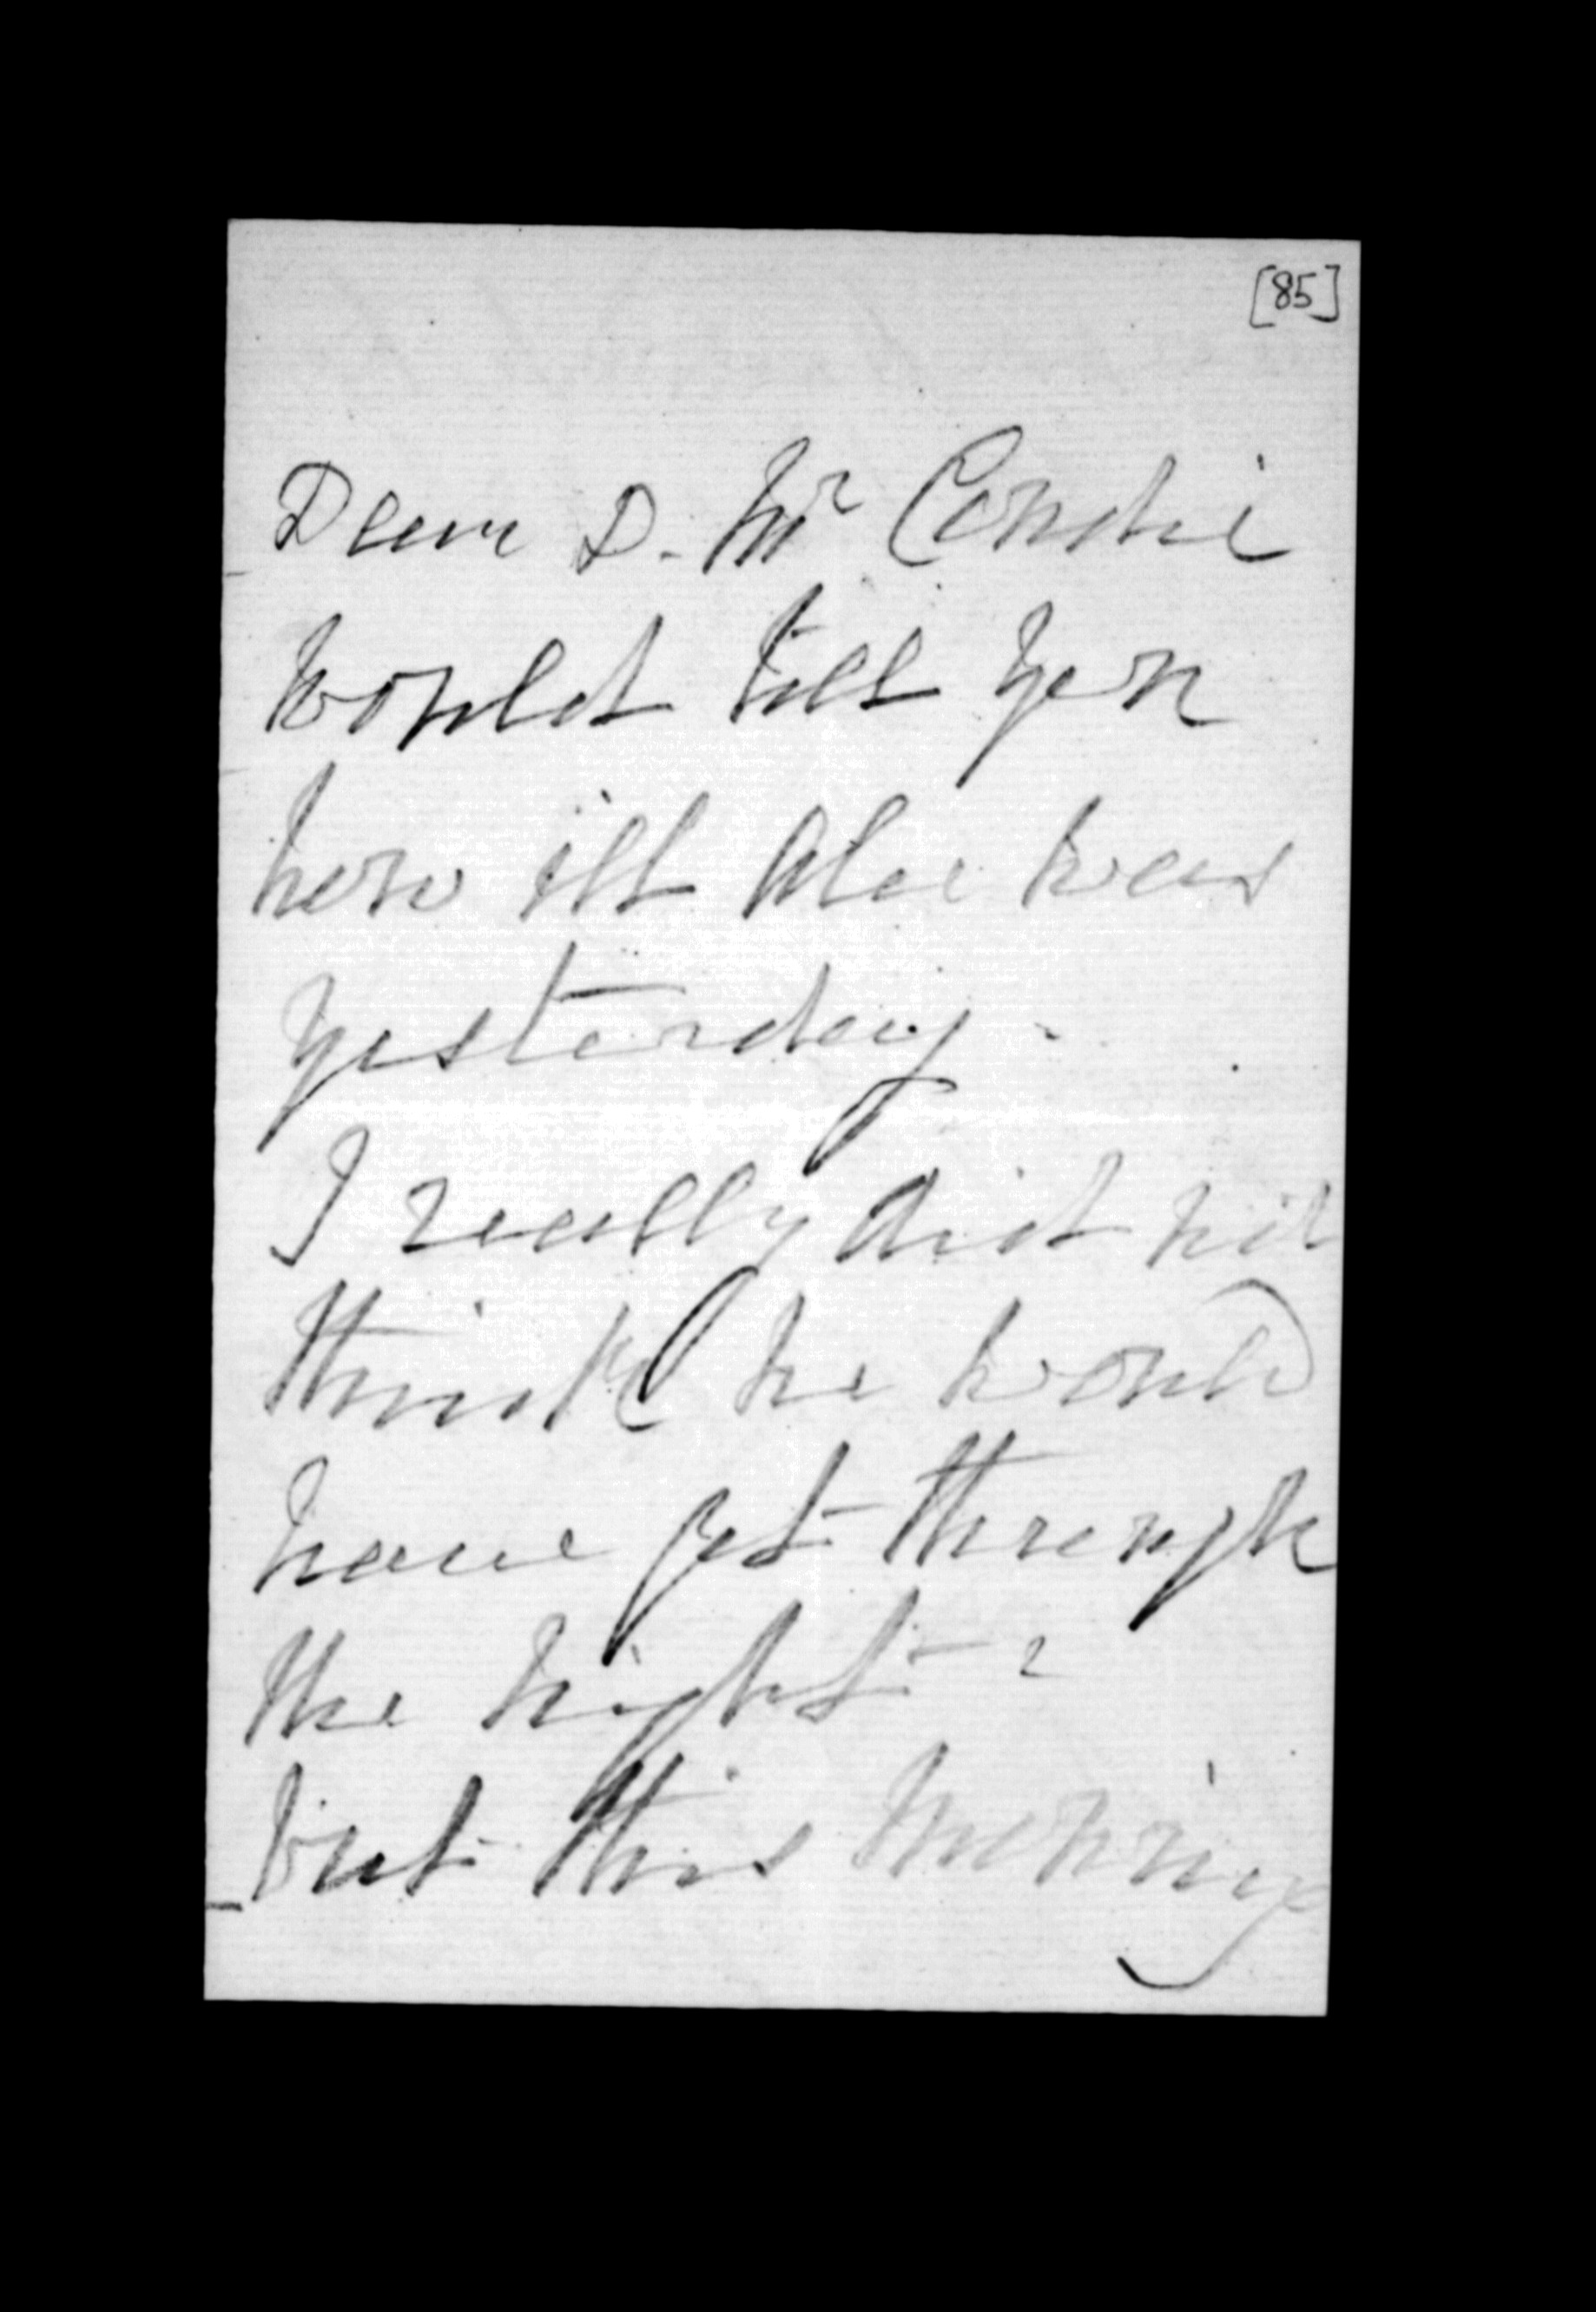 [85]
Dear D. Mr Condie
would tell you
how ill Alec was
yesterday -
I really did not
think he would
have got through
the night -
but this morning